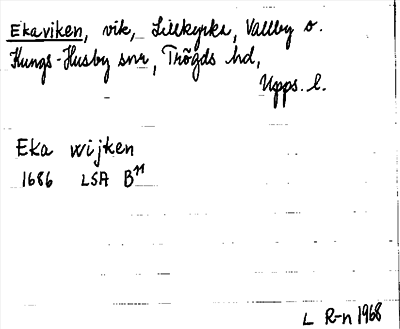 Ekaviken, vik, Lillkyrka, Vallby o.
Kungs-Husby snr, Trögds hd,
Upps. l.
Eka wijken
1686 LSA B11
L R-n 1968